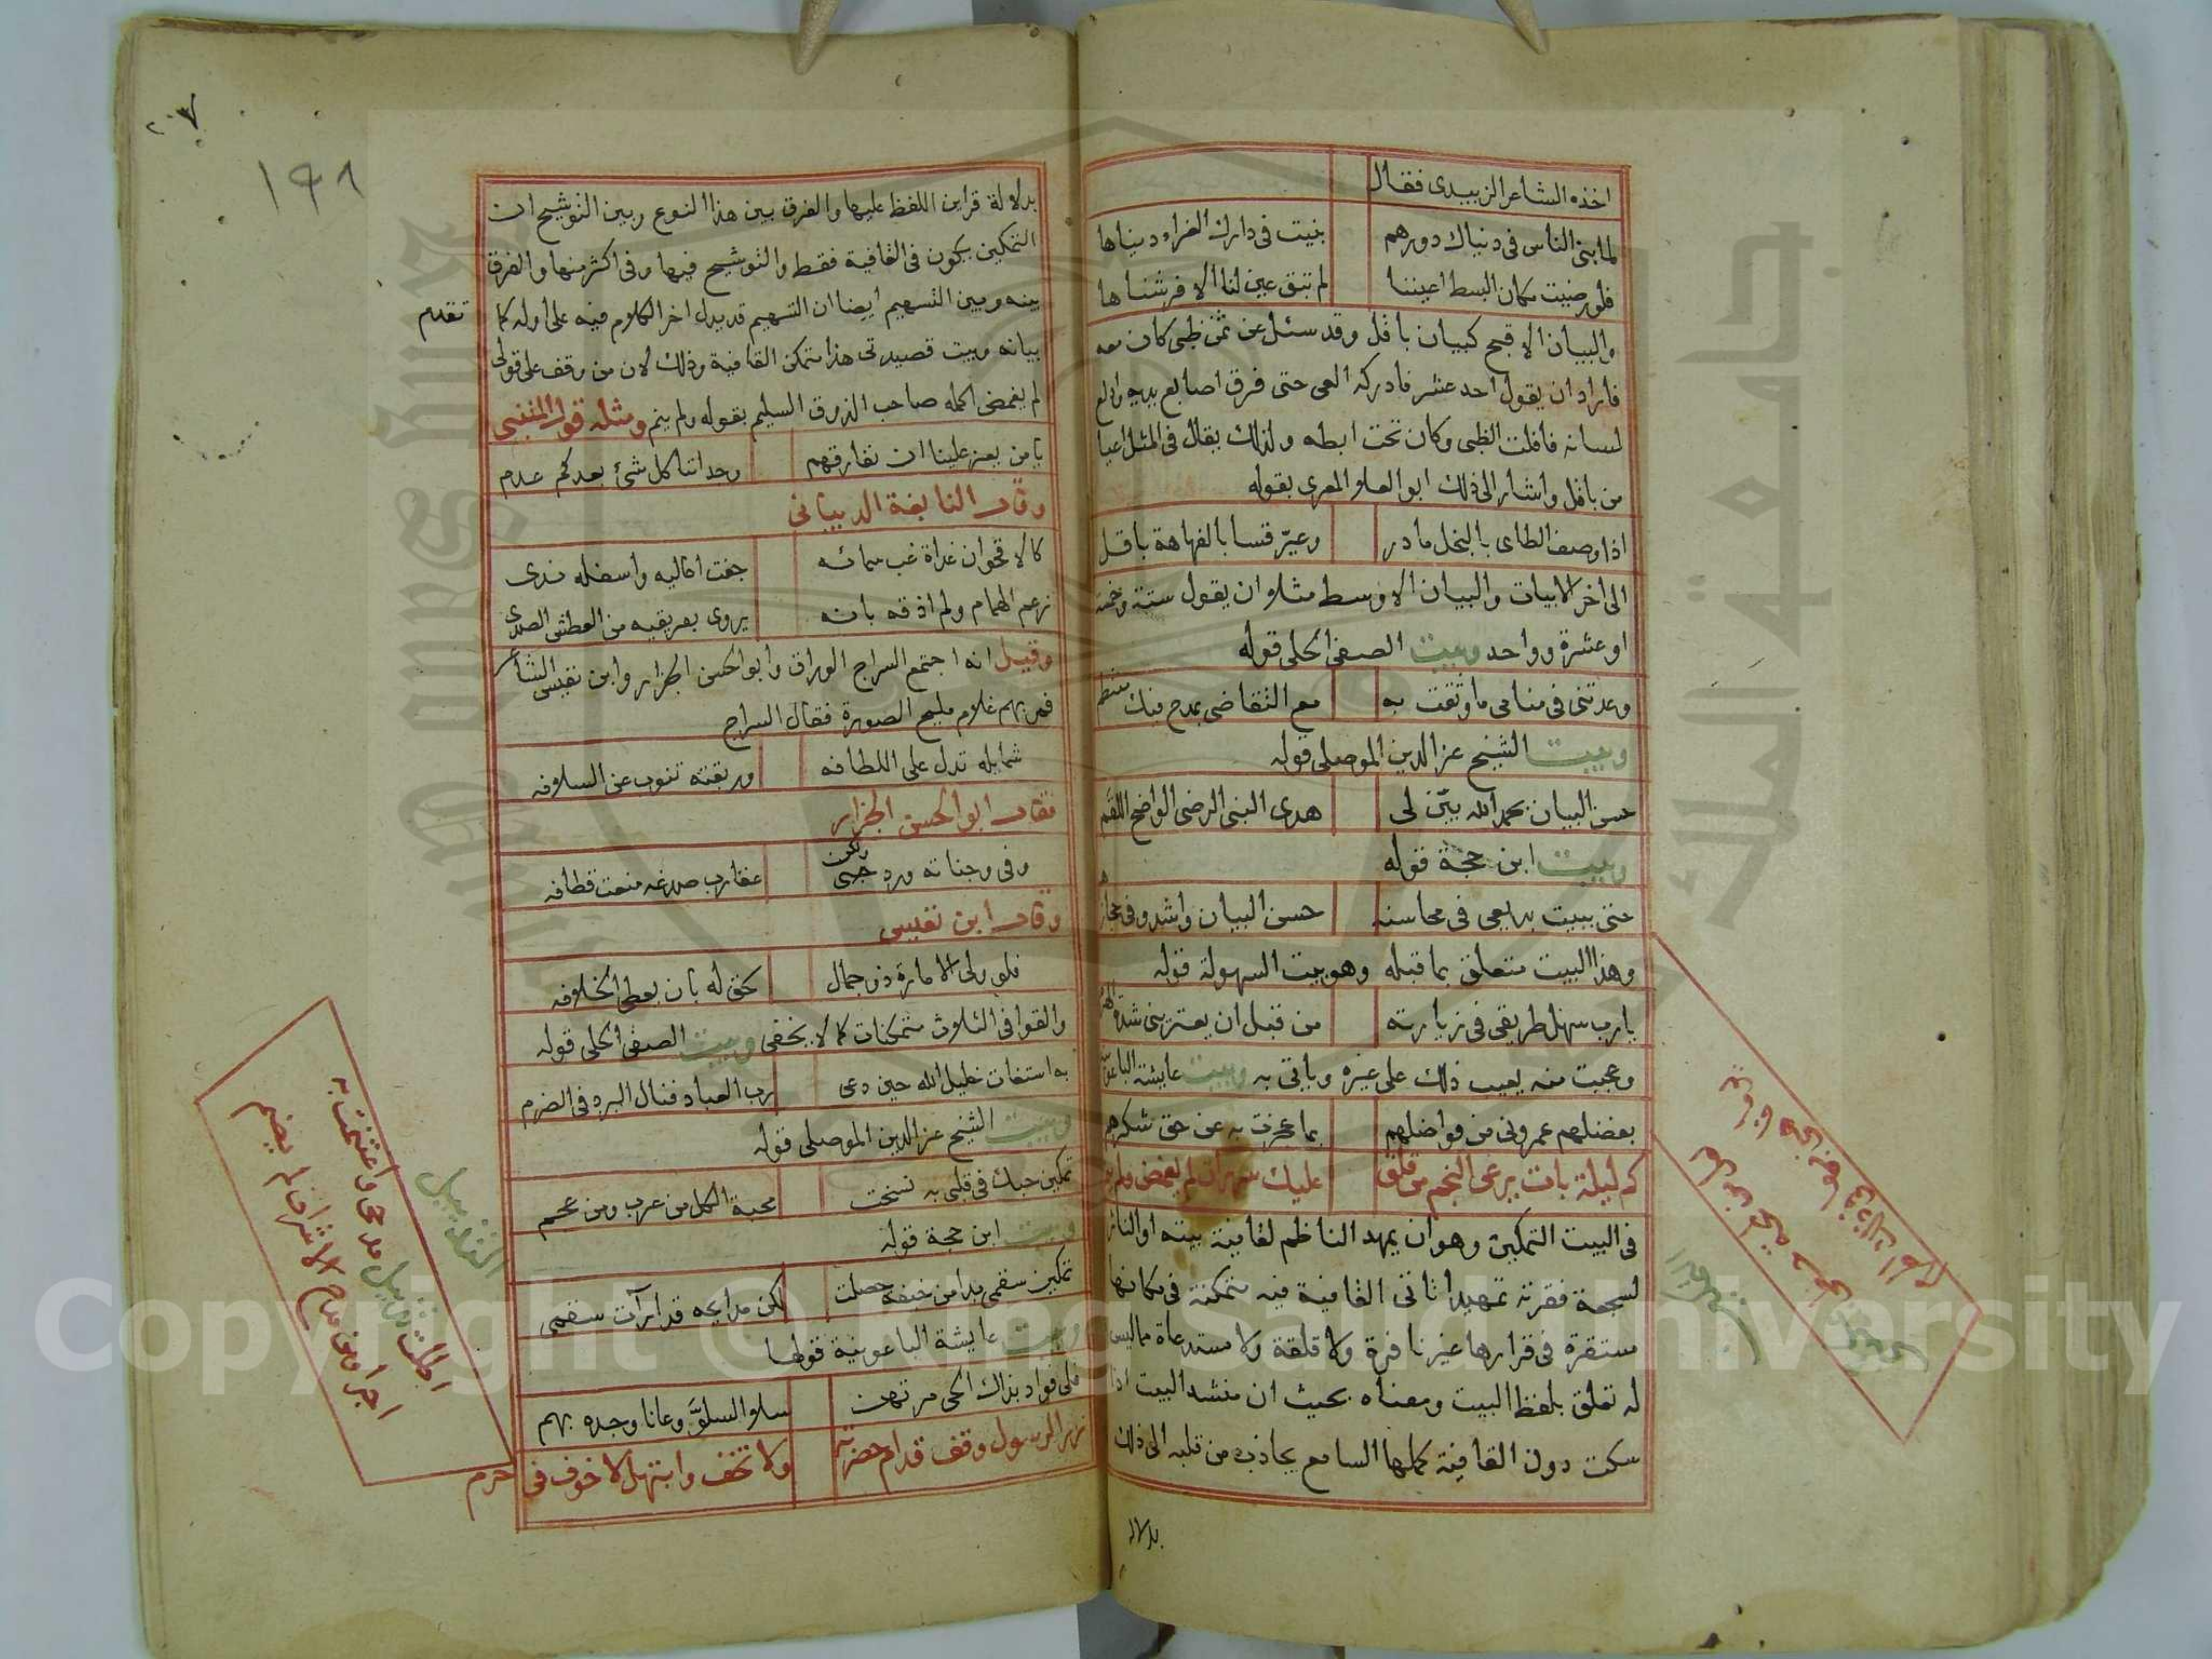 اخذه الشاعر الزبيدى فقال
لما بنى الناس فى دنياك دورهم بنيت فى دارك الغراء دنياها
فلو رضيت مكان البسط اعيننا لم تبق عين لنا الا فرشناها
والبيان الاقبح كبيان باقل وقد سئل عن ثمن ظبى كان معه
فاراد ان يقول احد عشر فادركه العى حتى فرق اصابع يديه وادلع
لسانه فافلت الظبى وكان تحت ابطه ولذلك يقال فى المثل اعيا
من باقل واشار الى ذلك ابو العلا المعرى بقوله
اذا وصف الطاى بالبخل مادر وعيّر قسا بالفهاهة باقل
الى اخر الابيات والبيان الاوسط مثلا ان يقول ستة وخمسة
او عشرة وواحد وبيت الصفى الحلى قوله
وعدتنى فى منامى ما وثقت به مع التقاضى بمدح منك منتظم
وبيت الشيخ عز الدين الموصلى قوله
حسن البيان بحمد الله بيّن لى هدى النبى الرضى الواضح اللقم
وبيت ابن حجة قوله
حتى ببيت بديعى فى محاسنه حسن البيان واشدو فى
وهذا البيت متعلق بما قبله وهو بيت السهولة قوله
يارب سهل طريقى فى زيارته من قبل ان يعترينى شدة الهرم
وعجبت منه يعيب ذلك على غيره وياتى به وبيت عايشة
بفضلهم عمرونى من فواضلهم بما عجزت به عن حق شكرهم
كم ليلة بات يرعى النجم من قلق عليك سهران لم يغمض ولم ينم
فى البيت التمكين وهو ان يمهد الناظم لقافية بيته او الناثر
لسجعة فقرته تمهيدا تاتى القافية فيه متمكنة فى مكانها
مستقرة فى قرارها غير نافرة ولا قلقة ولا مستدعاة مما ليس
له تعلق بلفظ البيت ومعناه بحيث ان منشد البيت اذا
سكت دون القافية كملها السامع بحاذب من قلبه الى ذلك
بدلالة
٢٠٧
١٩٨
بدلالة قراين اللفظ عليها والفرق بين هذا النوع وبين التوشيح ان
التمكين يكون فى القافية فقط والتوشيح فيها وفى اكثر منها والفرق
بينه وبين التسهيم ايضا ان التسهيم قد يدل اخر الكلام فيه على اوله كما تقدم
بيانه وبيت قصيدتى هذا متمكن القافية وذلك لان من وقف على قولى
لم يغمض اكمله صاحب الذوق السليم بقوله ولم ينم ومثله قول المتنبى
يا من يعز علينا ان نفارقهم وجداننا كل شئ بعدكم عدم
وقال النابغة الذبيانى
كالاقحوان غداة غب سمائه جفت اعاليه واسفله ندى
زعم الهمام ولم اذقه بانه يروى بعريقيه من العطش الصدى
وقيل انه اجتمع السراج الوراق وابو الحسن الجزار وابن نقيس الشاعر
فمر بهم غلام مليح الصورة فقال السراج
شمايله تدل على اللطافه وريقته تنوب عن السلافه
فقال ابو الحسن الجزار
وفى وجناته ورد جنى ولكن عقارب صدغه منعت قطافه
وقال ابن نقيس
فلو ولى الامارة ذو جمال لحق له بان يعطى الخلافه
والقوافى الثلاث متمكنات كما لا يخفى وبيت الصفى الحلى قوله
به استغاث خليل الله حين دعى رب العباد فنال البرد فى الضرم
وبيت الشيخ عز الدين الموصلى قوله
تمكين حبك فى قلبى به نسخت محبة الكل من عرب ومن عجم
وبيت ابن حجة قوله
تمكين سقمى بدا من خيفة حصلت لكن مدايحه قد ابرأت سقمى
وبيت عايشة الباعونية قولها
فلى فواد بذاك الحى مرتهن سلو السلوّ وعانا وجده بهم
زر الرسول وقف قدام حضرته ولا تخف وابتهل لا خوف فى حرم
التذييل
اجلت تذييل مدحى واعتنيت به